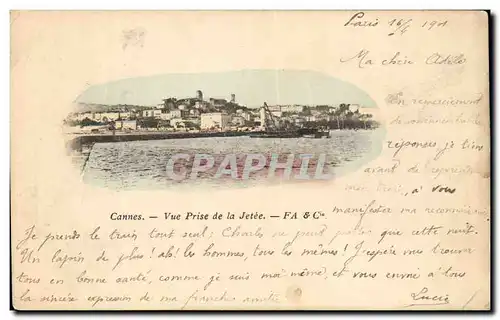 Paris 16/4 1901
Ma chère Adèle
En remerciement
de
réponses je tiens
avant de
à vous
manifester ma reconnaiss
Cannes. — Vue Prise de la Jetée. — FA & Cie
CPARAMA
Je prends le train tout seul; Charles ne peut partir que cette nuit.
Un lapin de plus! ah! les hommes, tous les mêmes! J'espère vous trouver
tous en bonne santé, comme je suis moi même, et vous envoie à tous
la sincère expression de ma franche amitié
Lucie